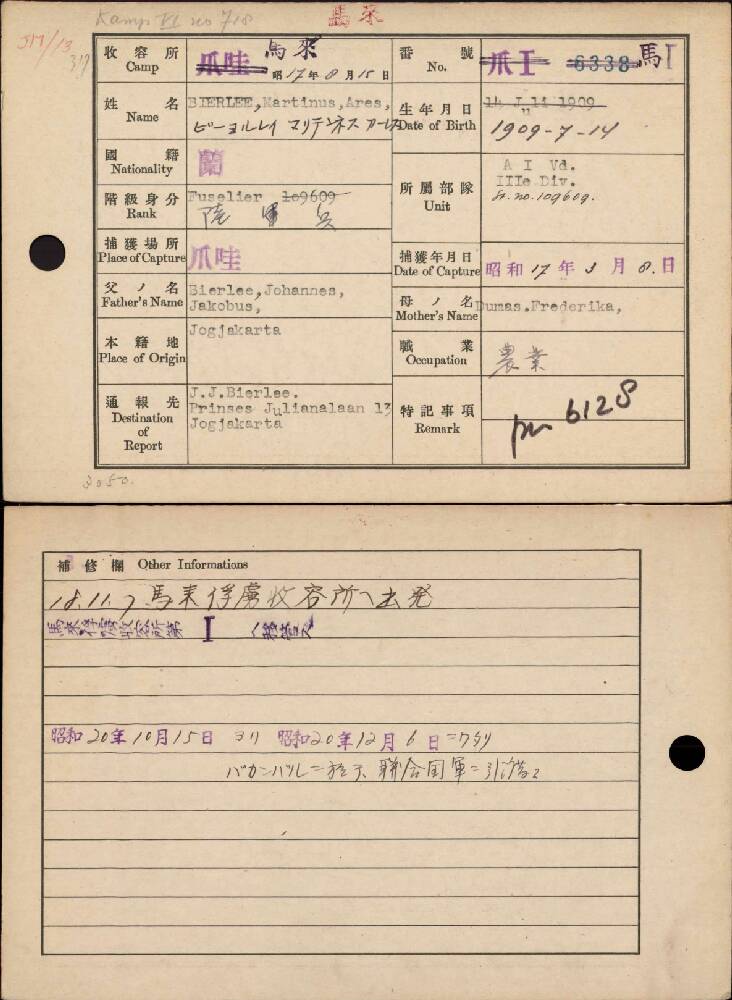 Kamp VI no 718
馬来
收容所
Camp
爪哇
馬来
昭17年8月15日
番號
No.
爪I 6338 馬I
姓名
Name
BIERLEE, Martinus, Ares,
ビーヨルレイ マリテネス アーレス
生年月日
Date of Birth
14 Juli 1909
1909-7-14
國籍
Nationality
蘭
階級身分
Rank
Fuselier 109609
陸軍兵
所屬部隊
Unit
A I Vd.
IIIe Div.
St. no. 109609.
捕獲場所
Place of Capture
爪哇
捕獲年月日
Date of Capture
昭和17年3月8.日
父ノ名
Father's Name
Bierlee, Johannes,
Jakobus,
母ノ名
Mother's Name
Dumas.Frederika,
本籍地
Place of Origin
Jogjakarta
職業
Occupation
農業
通報先
Destination
of
Report
J.J.Bierlee.
Prinses Julianalaan 13
Jogjakarta
特記事項
Remark
6128
3050.
補修欄 Other Informations
18.11.7 馬来俘虜收容所ヘ出発
馬来俘虜收容所第 I ヘ移管ス
昭和20年10月15日 ヨリ 昭和20年12月6日ニワタリ
パカンバルニ於テ 聯合国軍ニ引渡ス